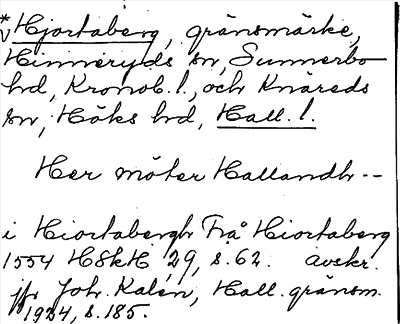 * Hjortaberg, gränsmärke,
v Hinneryds sn, Sunnerbo
hd, Kronob. l., och Knäreds
sn, Höks hd, Hall. l.
Her möter Hallandh --
i Hiortabergh Frå Hiortaberg
1554 HSkH 29, s. 62. avskr.
jfr Joh. Kalén, Hall. gränsm.
1924, s. 185.